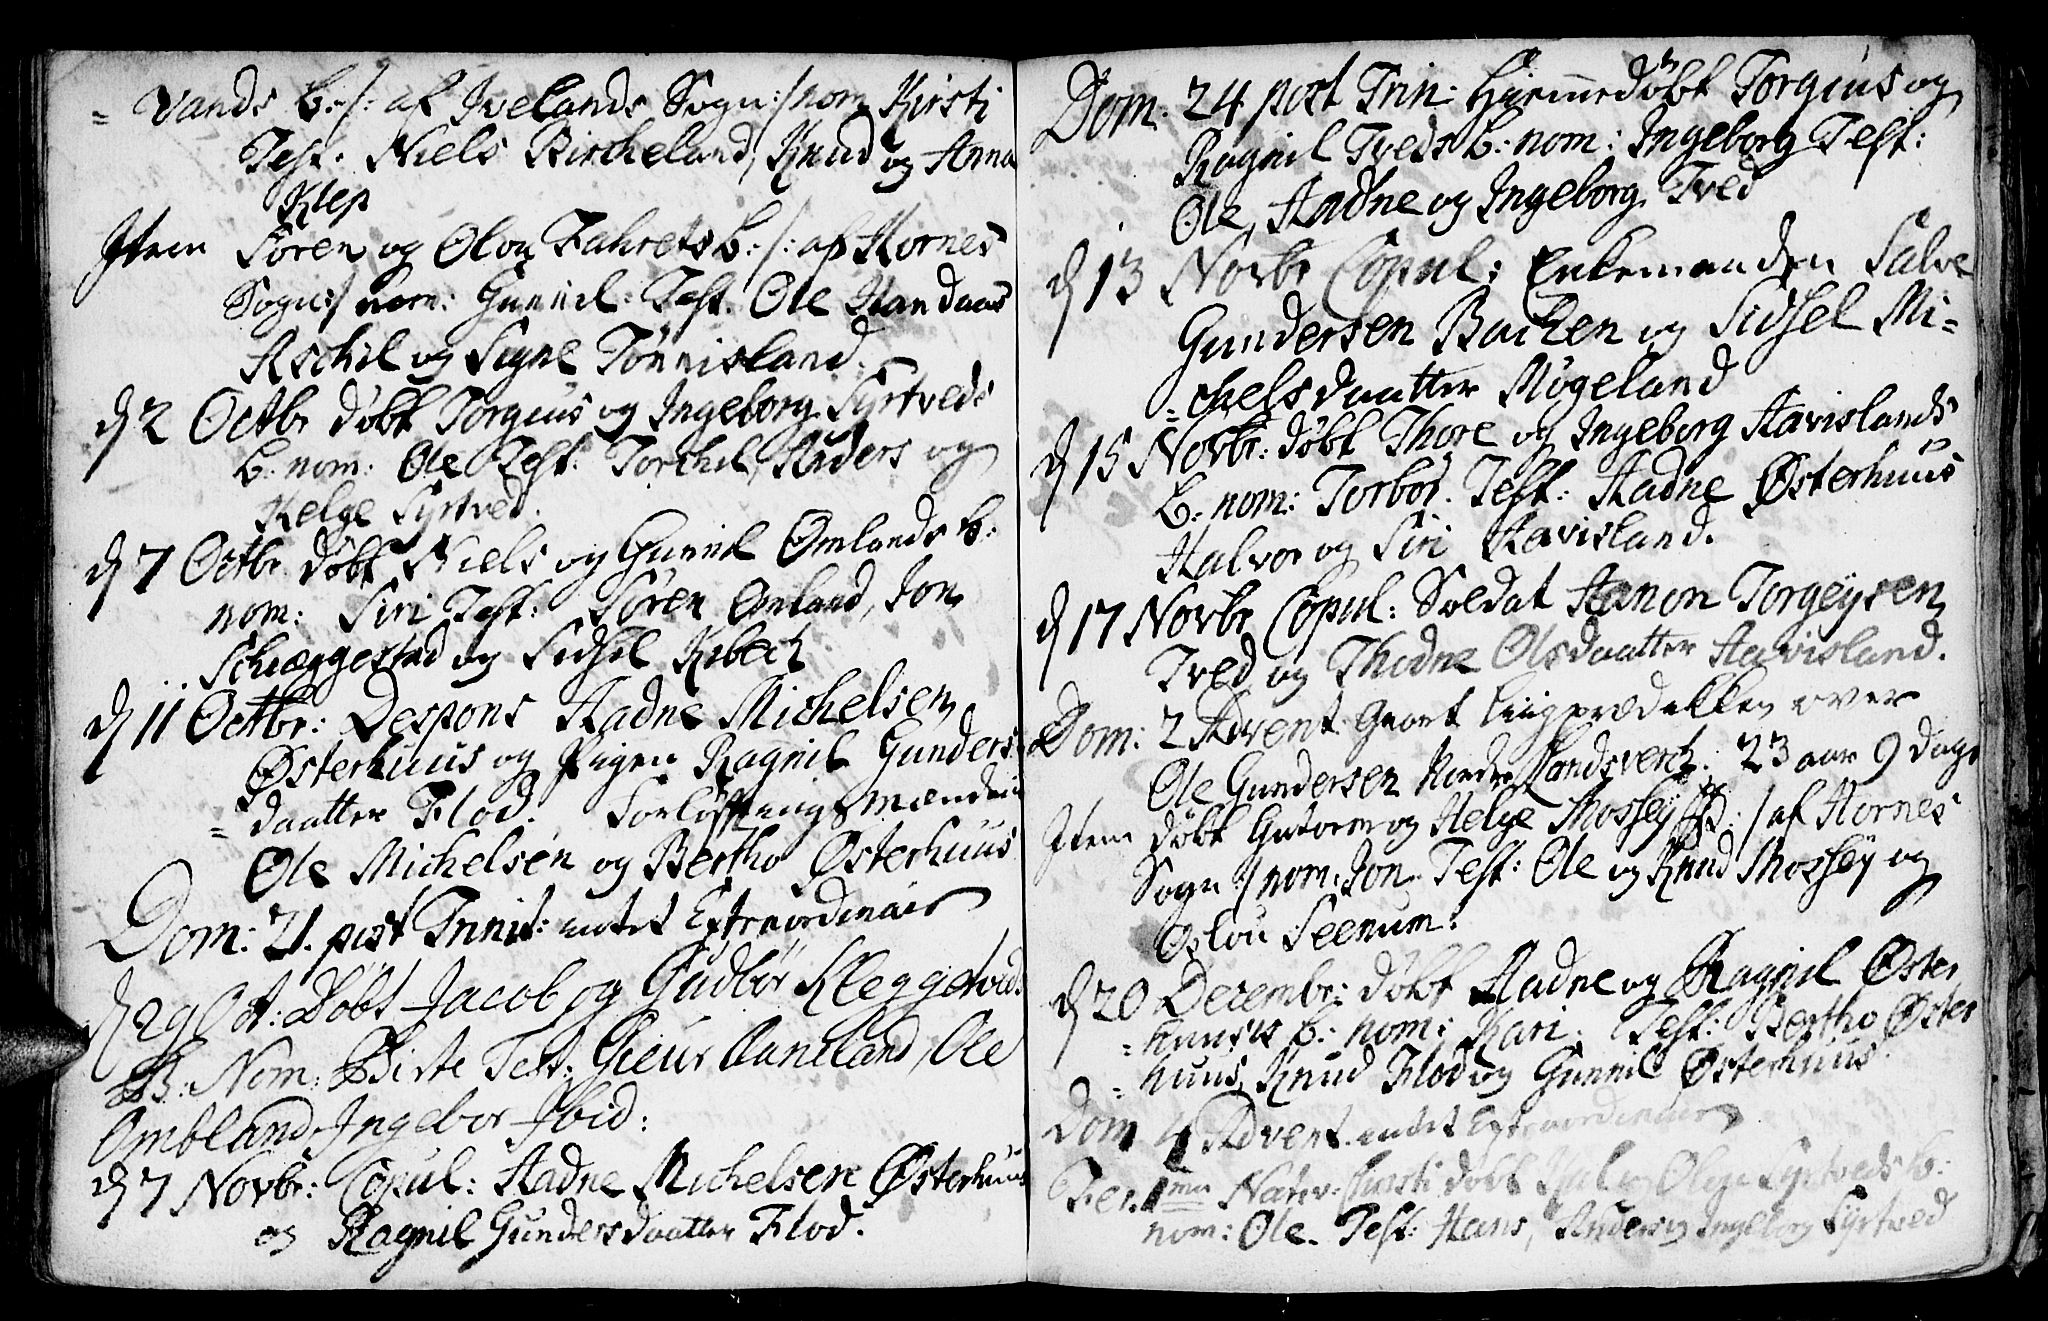 = Vands b: /: af Ivelands Sogn :/ nom Kirsti
Test. Niels Bircheland, Knud og Anna
Klep
Item Sören og Olou Fahrets b: /: af Hornes
Sogn :/ nom: Gunnil: Test. Ole Handaas
Aschil og Signe Tönnisland.
d 2 Octbr döbt Torgius og Ingeborg Syrtveds
b. nom: Ole Test: Torchil, Anders og
Helge Syrtved.
d 7 Octbr döbt Niels og Gunnil Omlands b:
nom: Siri Test: Sören Omland, Jon
Schiæggestad og Sidsel Kibech
d 11 Octbr: Despons Aadne Michelsen
Østerhuus og Pigen Ragnil Gunders
= daatter Flod. Forlöftningsmændene
Ole Michelsen og Bertho Østerhuus
Dom: 21. post Trinit: intet Extraordinair
d 29 Oct: Döbt Jacob og Gudbör Kleggetveds
B: Nom: Birte Test: Gieur Aaneland, Ole
Ombland, Ingebor Ibid:
d 7 Novbr: Copul: Aadne Michelsen Østerhuus
og Ragnil Gundersdaatter Flod.
Dom: 24 post Trin: Hiemmedöbt Torgius og
Ragnil Tveds b: nom: Ingeborg Test:
Ole, Aadne og Ingeborg Tved
d 13 Novbr Copul: Enkemanden Salve
Gundersen Bachen og Sidsel Mi=
= chelsdaatter Mögeland
d 15 Novbr: döbt Thore og Ingeborg Aavislands
b: nom: Torbor. Test: Aadne Østerhuus
Halvor og Siri Aavisland.
d 17 Novbr Copul: Soldat Aanon Torgeÿsen
Tved og Thodne Olsdaatter Aavisland.
Dom: 2 Advent giort Liigprædikken over
Ole Gundersen Nordre Landsverch: 23 aar 9 dage
Item döbt Gutorm og Helge Mosseÿ B: /: af Hornes
Sogn :/ nom. Jon. Test: Ole og Knud Mosseÿ og
Oslou Seenum.
d 20 Decembr: döbt Aadne og Ragnil Øster
= huuses b: nom: Kari. Test: Bertho Øster
= huus, Knud Flod og Gunnil Østerhuus.
Dom 4 Advent. intet Extraordinair
Fer. 1ma Nativ: Christi döbt og Olou Syrtveds b:
nom: Ole. Test: Hans, Anders og Ingeborg Syrtved